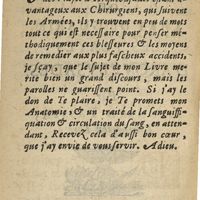 vantageux aux Chirurgient, qui suivent
les Armées, ils y trouvent en peu de mots
tout ce qui est necessaire pour penser me-
thodiquement ces blesseures & les moyens
de remedier aux plus fascheux accidents,
je sçay, que le sujet de mon Livre me
rite bien un grand discours, mais les
paroles ne guarissent point. Si j'ay le
don de Te plaire, je Te promets mon
Anatomie, & un traité de la sanguiffi-
quation & circulation du sang, en atten-
dant, Recevez cela d'aussi bon cœur,
que j'ay envie de vous servir. Adieu.